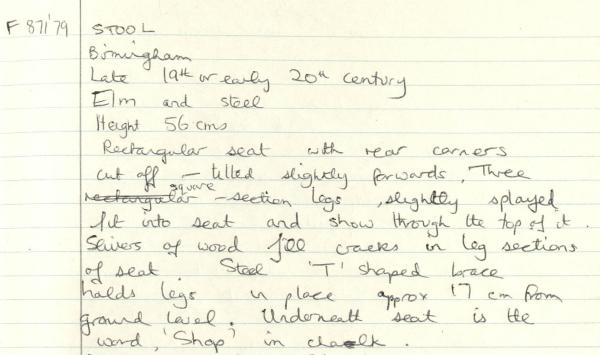 F 871'79 STOOL
Birmingham
Late 19th or early 20th century
Elm and steel
Height 56 cms
Rectangular seat with rear corners
cut off – tilted slightly forwards, Three
rectangular square – section legs, slightly splayed
fit into seat and show through the top of it.
Slivers of wood fill cracks in leg sections
of seat. Steel 'T' shaped brace
holds legs in place approx 17 cm from
ground level. Underneath seat is the
word, 'Shop' in chalk.